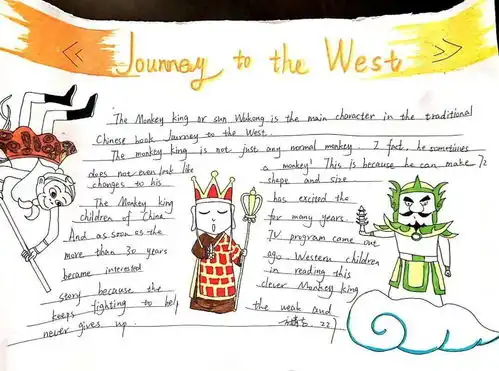 Journey to the West
The Monkey king or sun Wukong is the main character in the traditional
Chinese book Journey to the West.
The monkey king is not just any normal monkey. I fact, he sometimes
does not even look like a monkey! This is because he can make 72
changes to his shape and size
The Monkey king has excited the
children of China for many years.
And as soon as the TV program came out
more than 30 years ago Western children
became interested in reading this
story because the clever Monkey king
keeps fighting to help the weak and
never gives up.